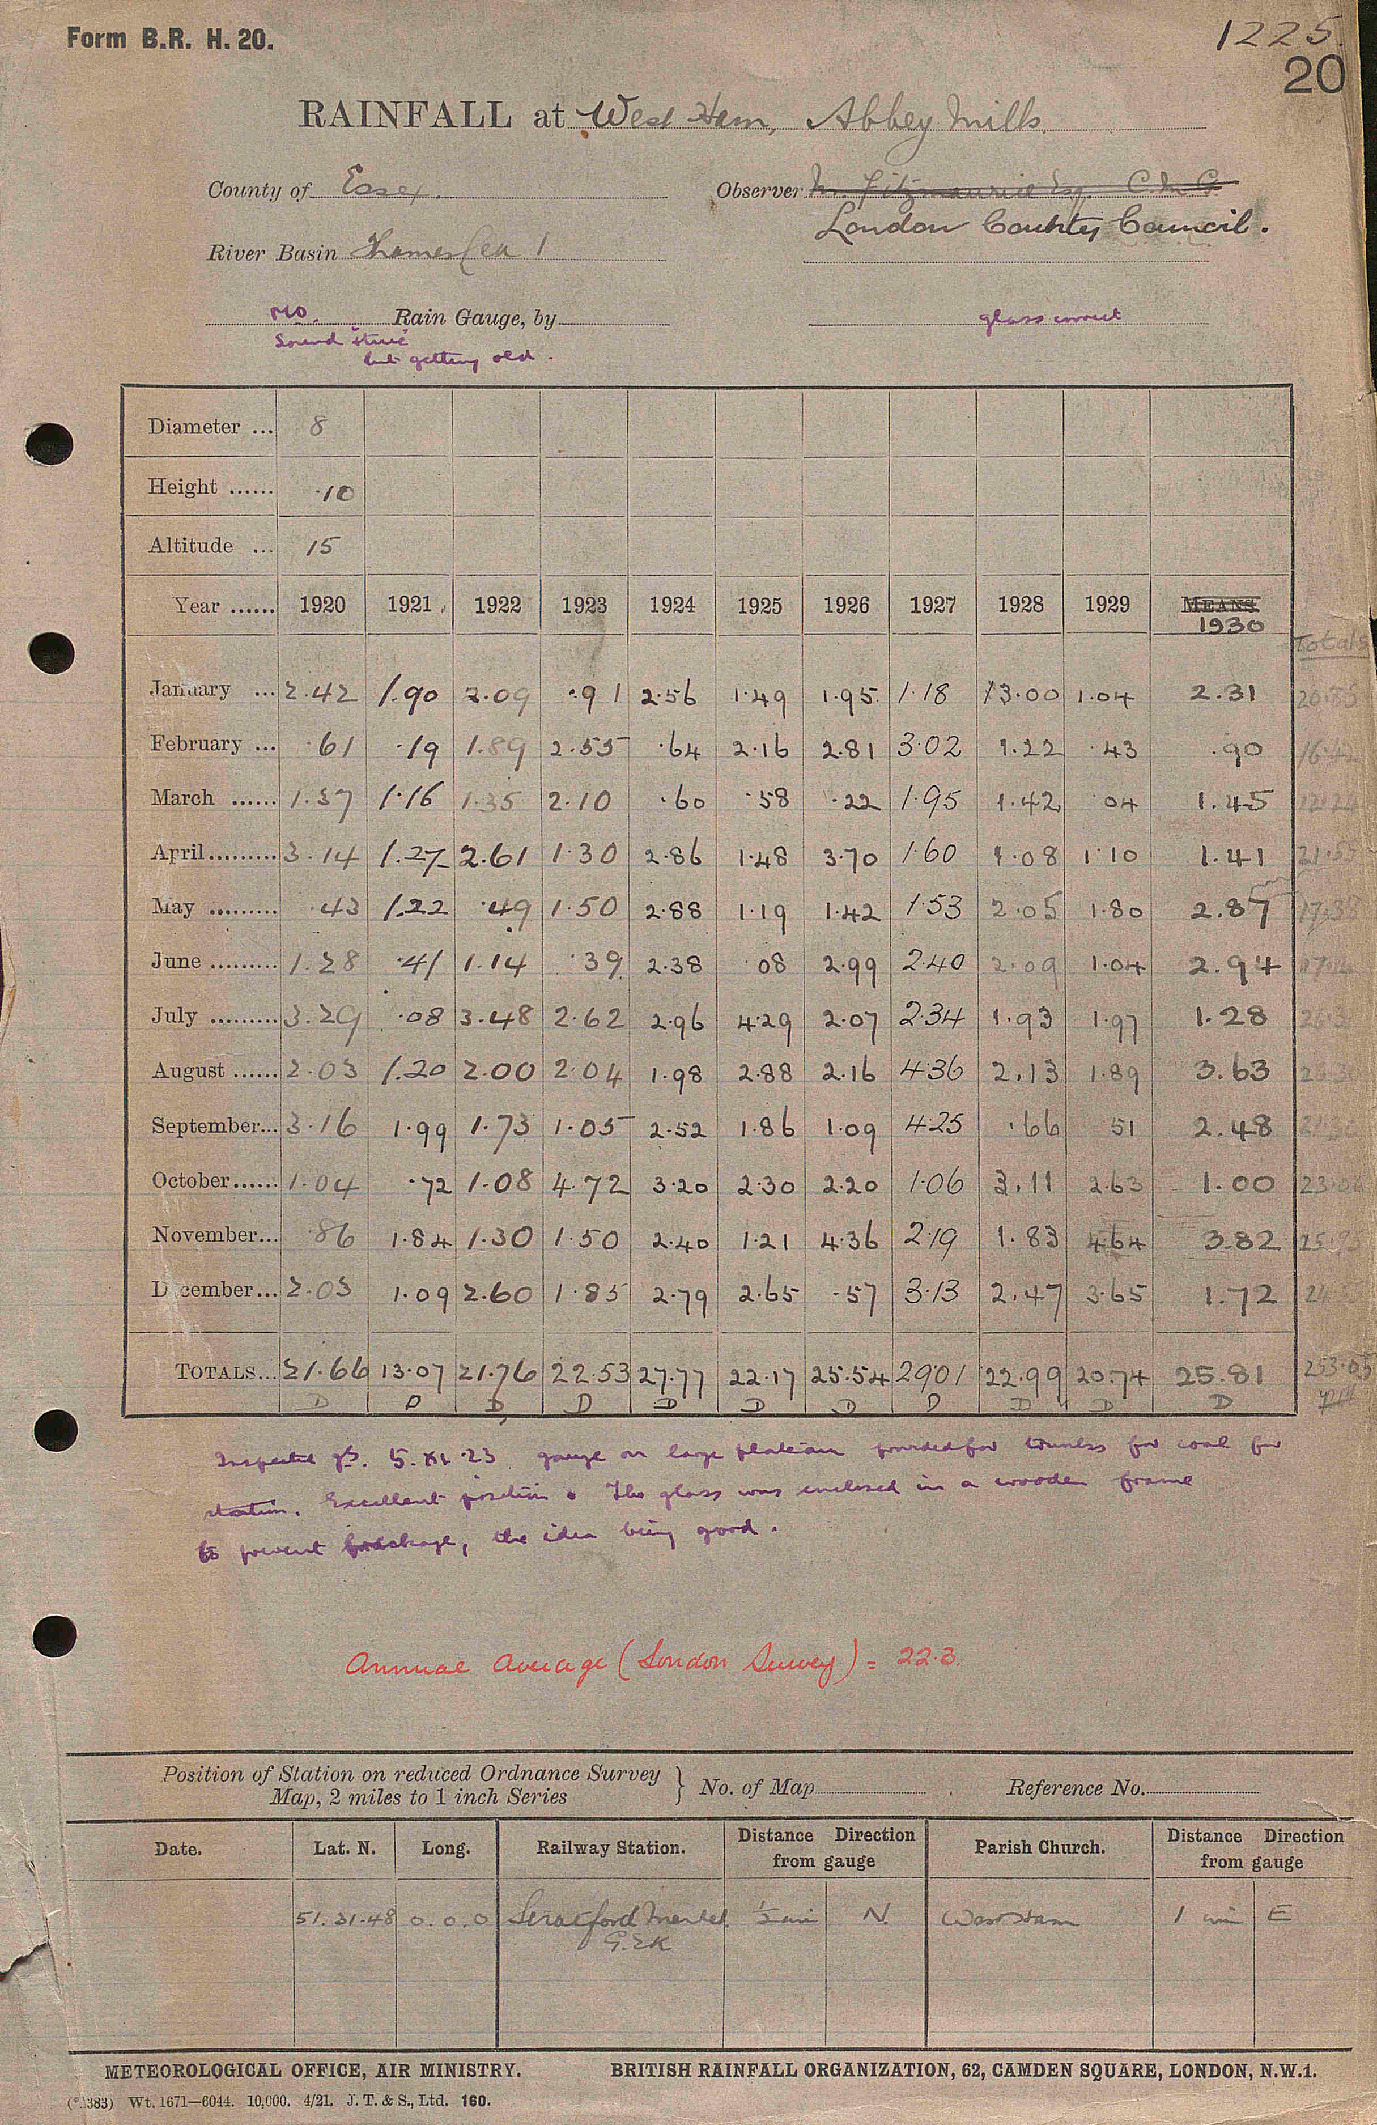 Form B.R. H. 20.
1225.
20
RAINFALL at West Ham, Abbey Mills
County of Essex.
Observer M. Fitzmaurice Esq. C.M.G.
London County Council.
River Basin Thames (Lea 1
MO. Rain Gauge, by glass correct
Sound & true
but getting old.
Diameter ... 8
Height ...... ·10
Altitude ... 15
Year ...... 1920 1921 1922 1923 1924 1925 1926 1927 1928 1929 MEANS
1930
Totals
January ... 2.42 1.90 2.09 .91 2.56 1.49 1.95 1.18 3.00 1.04 2.31
February ... .61 .19 1.89 2.55 .64 2.16 2.81 3.02 1.22 .43 .90
March ...... 1.37 1.16 1.35 2.10 .60 .58 .22 1.95 1.42 04 1.45
April......... 3.14 1.27 2.61 1.30 2.86 1.48 3.70 1.60 1.08 1.10 1.41
May ......... .43 1.22 .49 1.50 2.88 1.19 1.42 1.53 2.05 1.80 2.87
June ......... 1.28 .41 1.14 .39 2.38 08 2.99 2.40 2.09 1.04 2.94
July ......... 3.29 .08 3.48 2.62 2.96 4.29 2.07 2.34 1.93 1.97 1.28
August ...... 2.03 1.20 2.00 2.04 1.98 2.88 2.16 4.36 2.13 1.89 3.63
September... 3.16 1.99 1.73 1.05 2.52 1.86 1.09 4.25 .66 51 2.48
October...... 1.04 .72 1.08 4.72 3.20 2.30 2.20 1.06 3.11 2.63 1.00
November... .86 1.84 1.30 1.50 2.40 1.21 4.36 2.19 1.83 4.64 3.82
December... 2.03 1.09 2.60 1.85 2.79 2.65 .57 3.13 2.47 3.65 1.72
TOTALS... 21.66 13.07 21.76 22.53 27.77 22.17 25.54 29.01 22.99 20.74 25.81 253.05
D D D D D D D D D D D
Inspected 5.XI.23. gauge on large plateau for coal for
station. Excellent position. The glass was enclosed in a wooden frame
to prevent breakage, the idea being good.
Annual average (London Survey) = 22.3.
Position of Station on reduced Ordnance Survey
Map, 2 miles to 1 inch Series } No. of Map Reference No.
Date. Lat. N. Long. Railway Station. Distance Direction from gauge Parish Church. Distance Direction from gauge
51.31.48 0.0.0 Stratford Market ½ mi N. West Ham 1 mi E
G.E.R
METEOROLOGICAL OFFICE, AIR MINISTRY. BRITISH RAINFALL ORGANIZATION, 62, CAMDEN SQUARE, LONDON, N.W.1.
Wt. 1671—6044. 10,000. 4/21. J. T. & S., Ltd. 160.